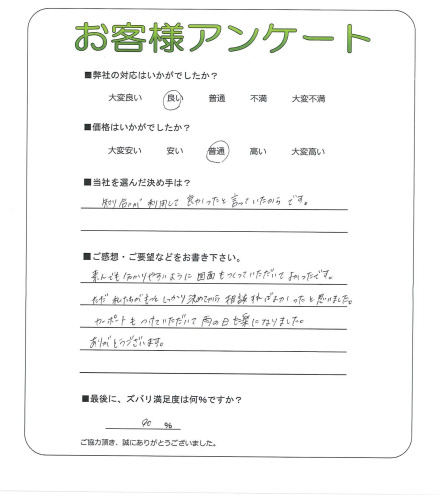 お客様アンケート
■弊社の対応はいかがでしたか？
大変良い 良い 普通 不満 大変不満
■価格はいかがでしたか？
大変安い 安い 普通 高い 大変高い
■当社を選んだ決め手は？
知り合いが利用して良かったと言っていたからです。
■ご感想・ご要望などをお書き下さい。
素人でも分かりやすいように図面もつくっていただいてよかったです。
ただ私たちがもっとしっかり決めてから相談すればよかったと思いました。
カーポートもつけていただいて雨の日も楽になりました。
ありがとうございます。
■最後に、ズバリ満足度は何％ですか？
90 ％
ご協力頂き、誠にありがとうございました。